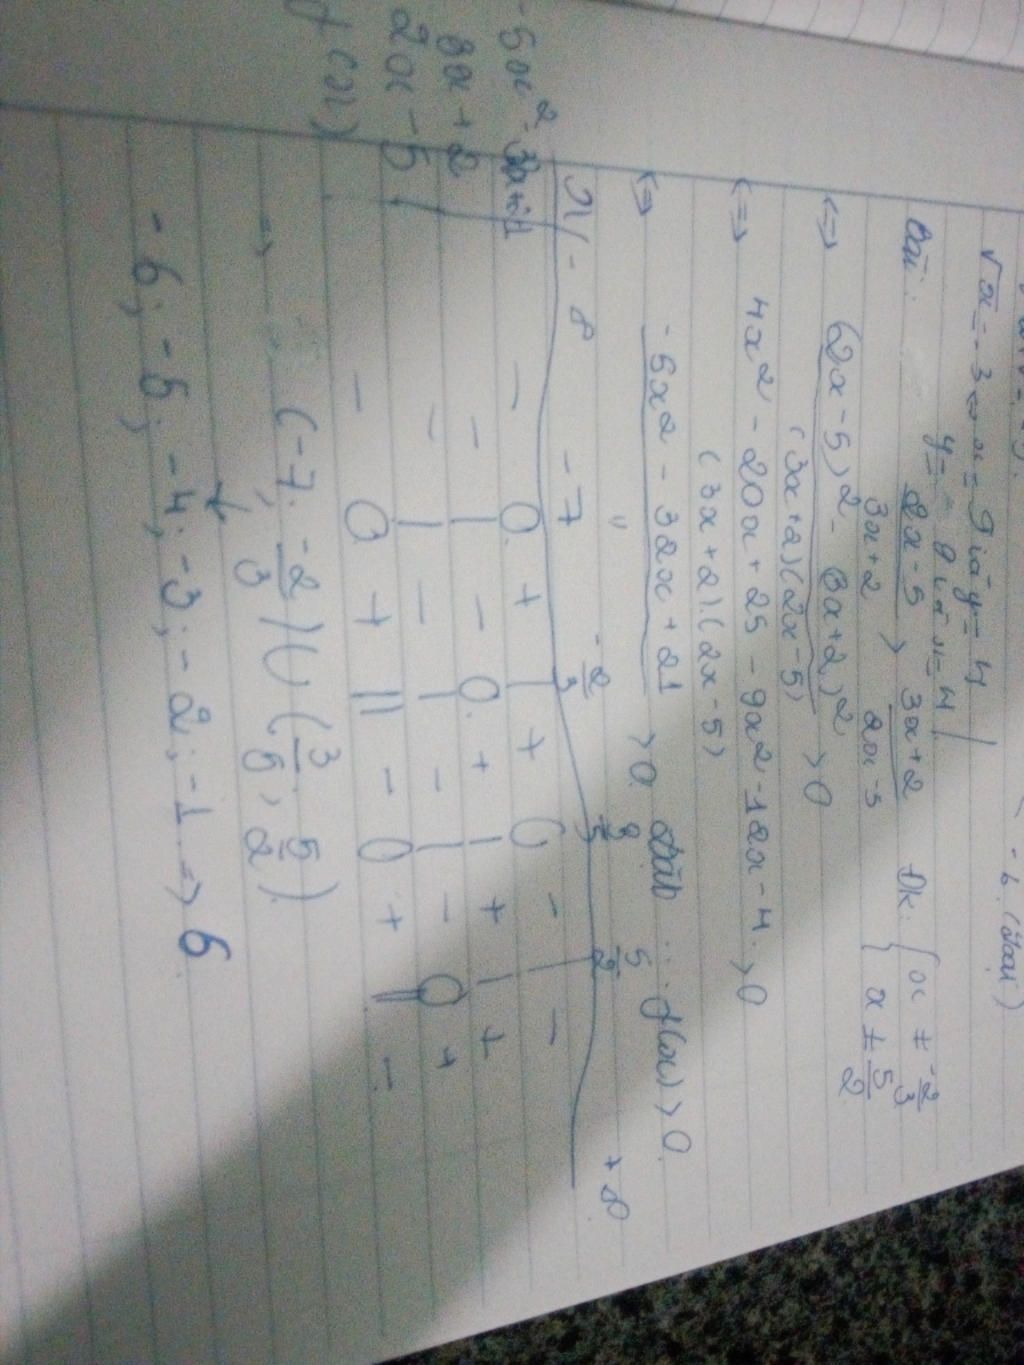 √x = -3 ⇔ x = 9 là y = 4
y = 9 là x = 4
- 4. (loại)
Bài: (2x - 5)/(3x + 2) > (3x + 2)/(2x - 5) ĐK: { x ≠ -2/3
{ x ≠ 5/2
<=> ((2x - 5)² - (3x + 2)²)/((3x + 2)(2x - 5)) > 0
<=> (4x² - 20x + 25 - 9x² - 12x - 4)/((3x + 2).(2x - 5)) > 0
<=> (-5x² - 32x + 21)/((3x + 2)(2x - 5)) > 0. Đặt : f(x) > 0.
x | -∞ -7 -2/3 3/5 5/2 +∞
-5x² - 32x + 21 | - 0 + | + 0 - | -
3x + 2 | - | - 0 + | + | +
2x - 5 | - | - | - | - 0 +
f(x) - 0 + || - 0 + || -
=> (-7; -2/3) ∪ (3/5; 5/2).
↓
- 6; - 5; - 4; - 3; - 2; - 1 => 6